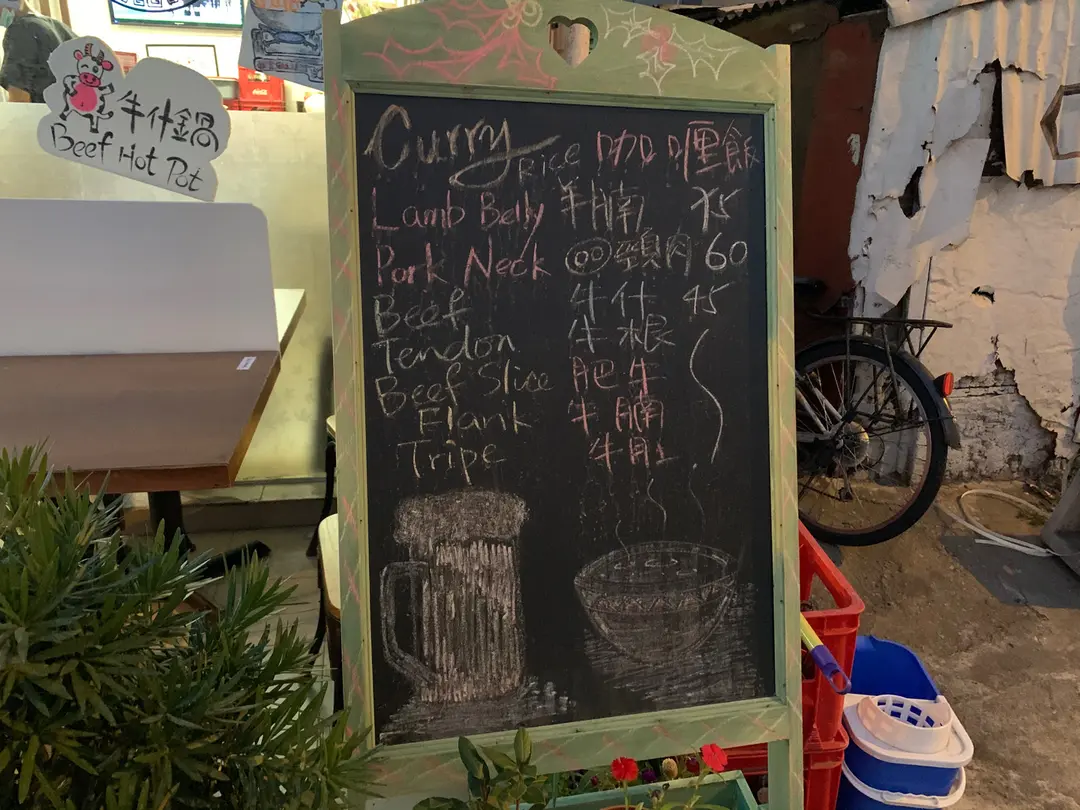 牛什鍋
Beef Hot Pot
Curry Rice 咖喱飯
Lamb Belly 羊腩 75
Pork Neck 頸肉 60
Beef 牛什 45
Tendon 牛根
Beef Slice 肥牛
Flank 牛腩
Tripe 牛肚